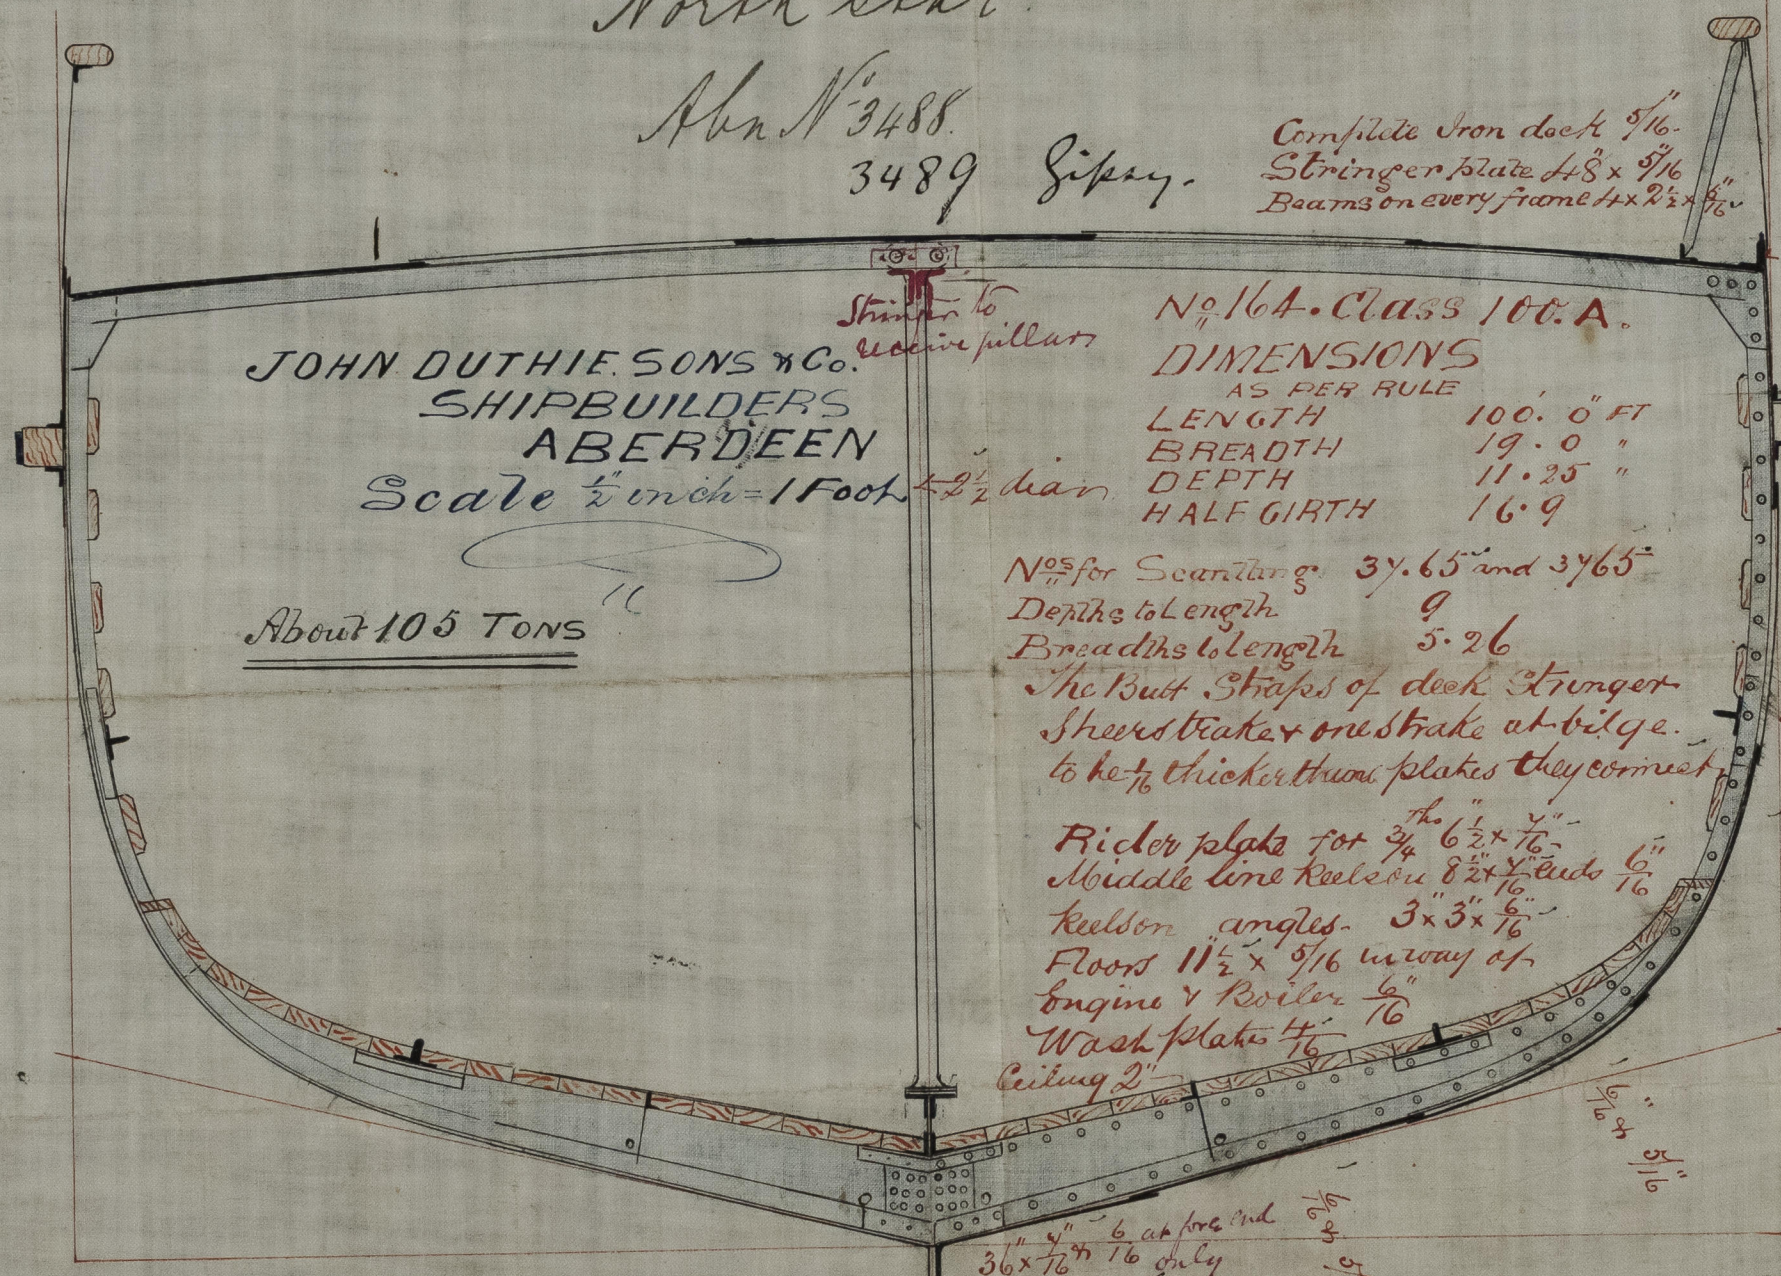 North Star.
Abn No 3488.
3489 Gipsy.
Complete Iron deck 5/16"
Stringer plate 48" x 5/16"
Beams on every frame 4 x 2½ x 5/16"
Stringer to
receive pillars
JOHN DUTHIE. SONS & Co.
SHIPBUILDERS
ABERDEEN
Scale ½ inch = 1 Foot
2½" diam
About 105 TONS
No 164. Class 100. A.
DIMENSIONS
AS PER RULE
LENGTH 100'. 0" FT
BREADTH 19. 0 "
DEPTH 11.25 "
HALF GIRTH 16.9
Nos for Scantling 37.65 and 3765
Depths to Length 9
Breadths to length 5.26
The Butt Straps of deck Stringer
Sheerstrake & one strake at bilge.
to be 1/16 thicker than plates they connect
Rider plate for ¾ ths 6½" x 7/16"
Middle line Keelson 8½" x 7/16" ends 6/16"
Keelson angles. 3" x 3" x 6/16"
Floors 11½" x 5/16 in way of
Engine & Boiler 6/16"
Wash plates 4/16"
Ceiling 2"
6/16" & 5/16"
6/16 & 5
36" x 7/16" & 6/16 at fore end
only